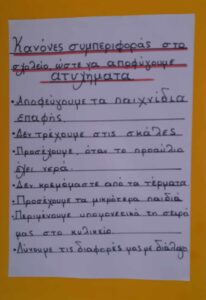 Κανόνες συμπεριφοράς στο
σχολείο, ώστε να αποφύγουμε
ατυχήματα
•Αποφεύγουμε τα παιχνίδια
επαφής
•Δεν τρέχουμε στις σκάλες
•Προσέχουμε, όταν το προαύλιο
έχει νερά.
•Δεν κρεμόμαστε από τα τέρματα
•Προσέχουμε τα μικρότερα παιδιά
•Περιμένουμε υπομονετικά τη σειρά
μας στο κυλικείο.
•Λύνουμε τις διαφορές μας με διάλογο